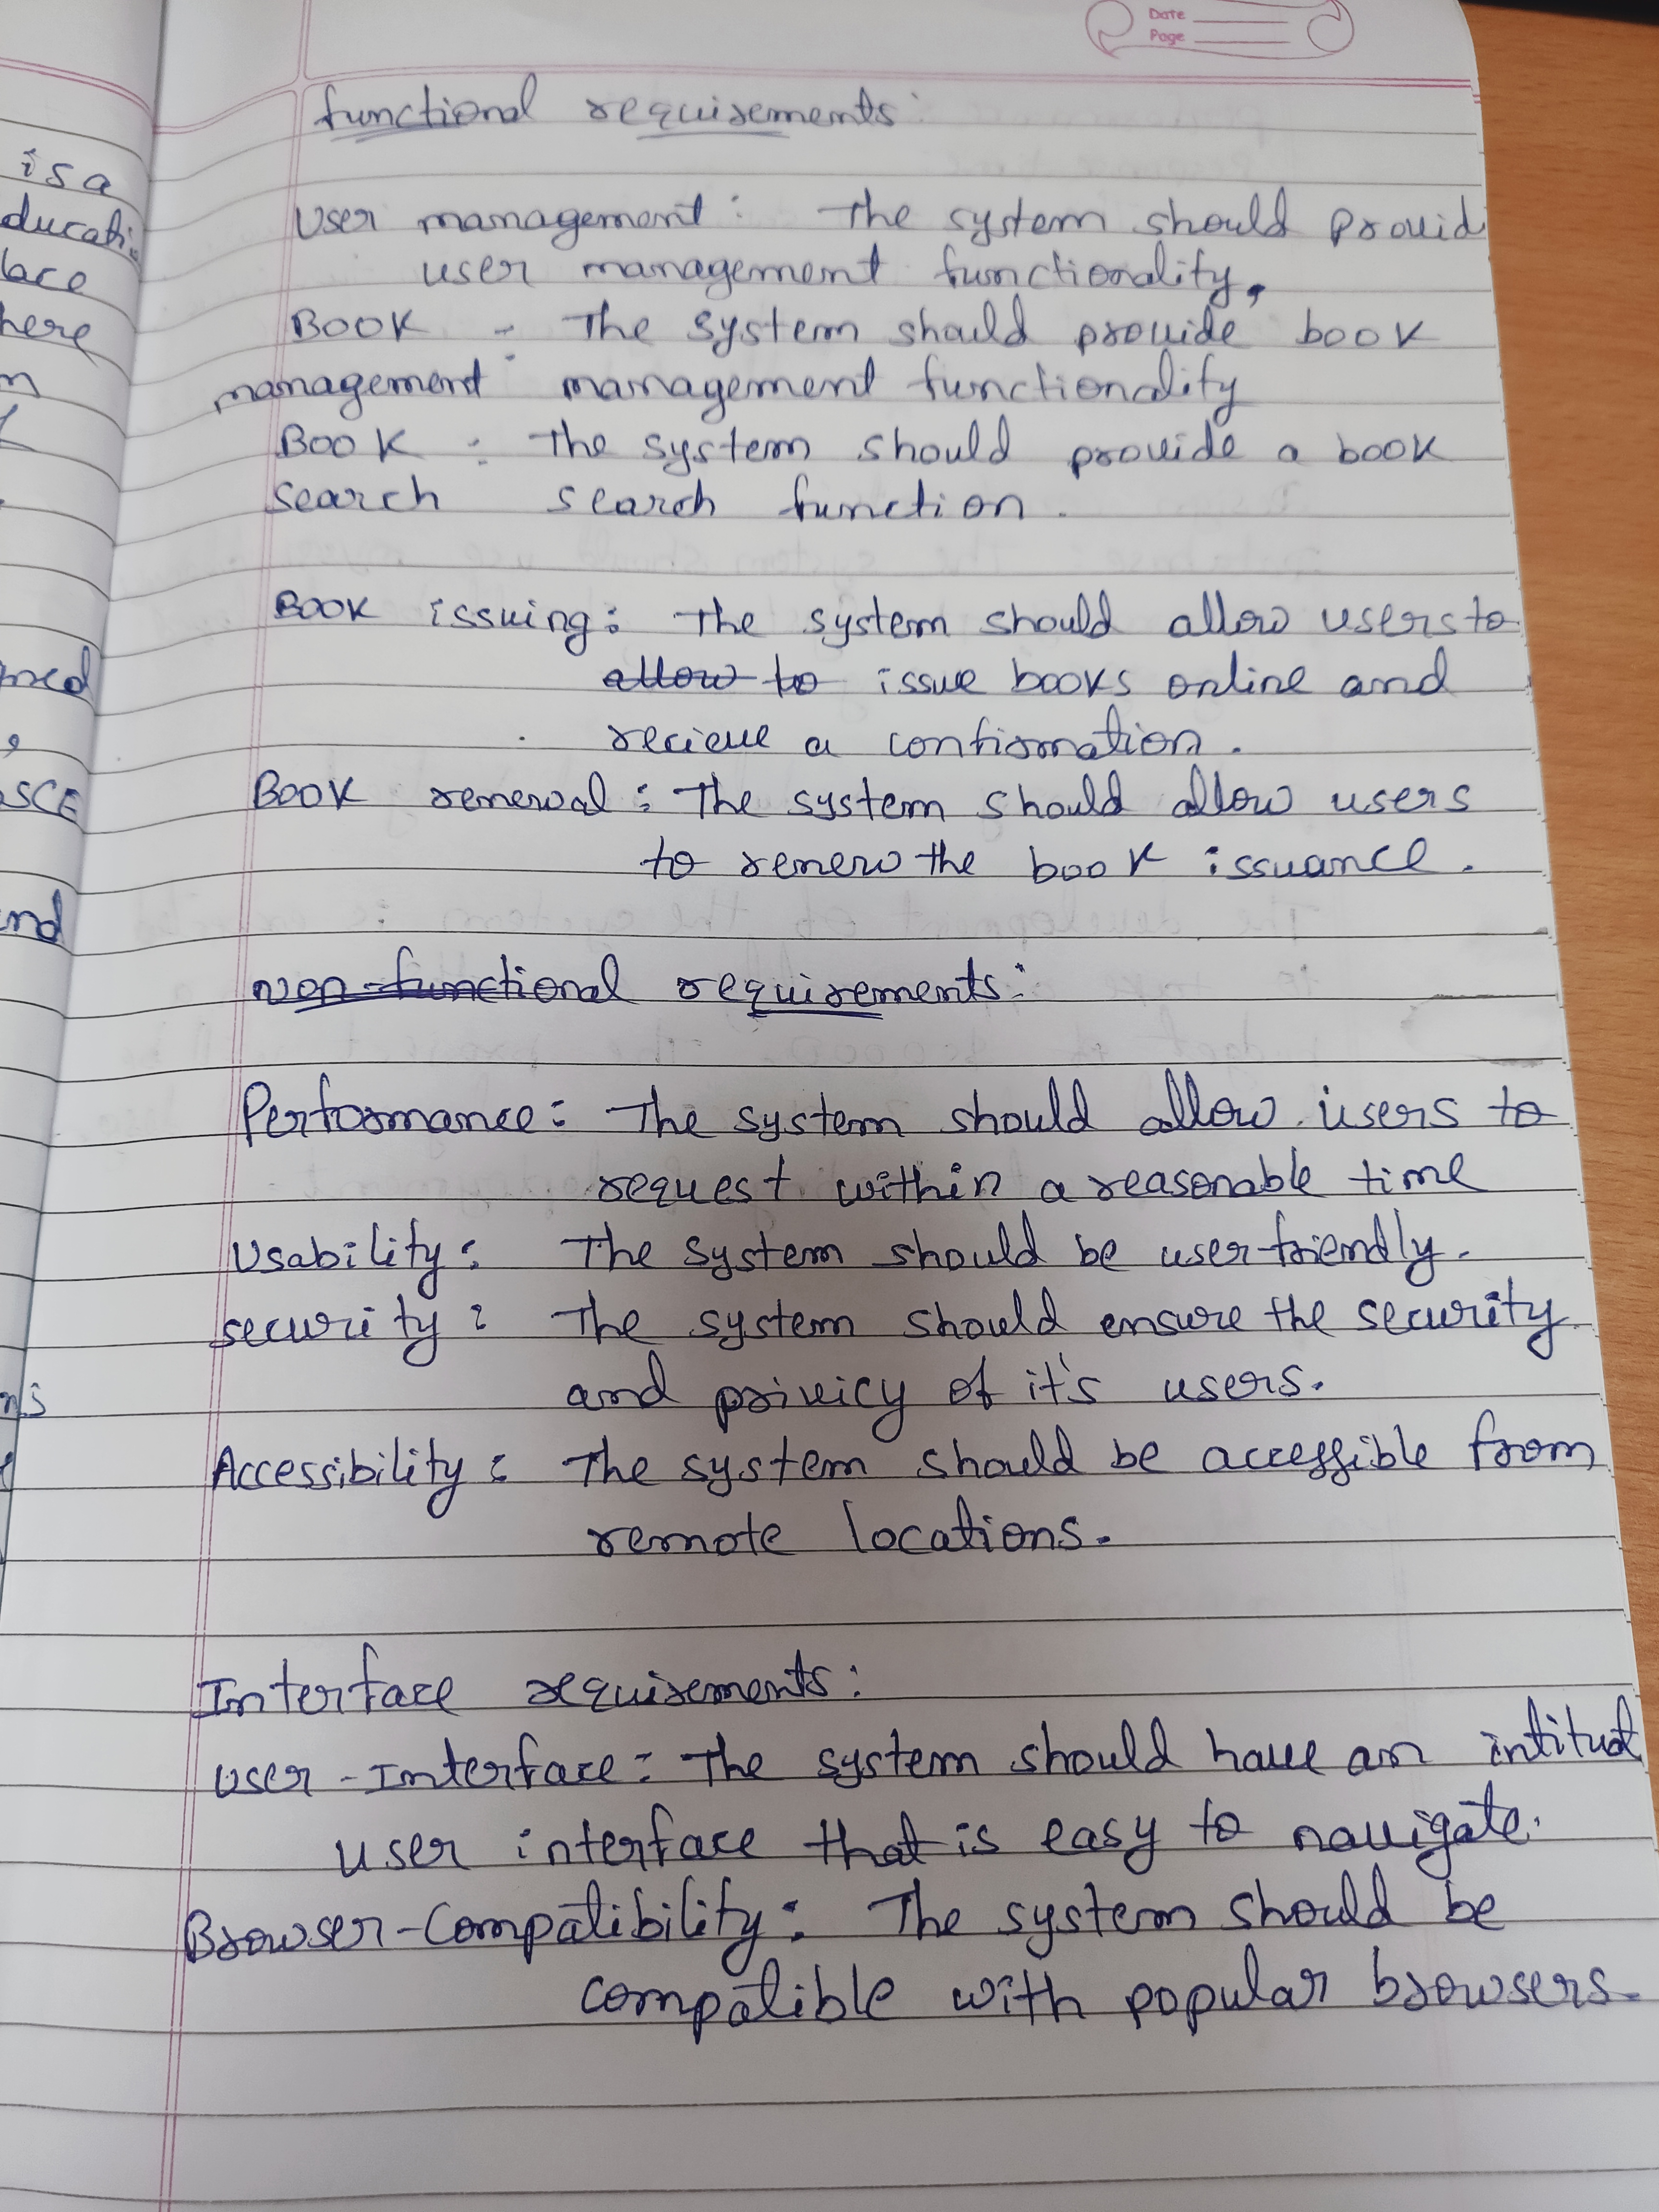 Date
Page
functional requirements:
User management: The system should provid
user management functionality.
Book : The system should provide book
management management functionality
Book : The system should provide a book
search search function.
Book issuing: The system should allow users to
allow to issue books online and
recieve a confirmation.
Book renewal: The system should allow users
to renew the book issuance.
Non-functional requirements:
Performance: The system should allow users to
request within a reasonable time
Usability: The system should be user-friendly.
security: The system should ensure the security
and privicy of it's users.
Accessibility: The system should be accessible from
remote locations.
Interface requirements:
User-Interface: The system should have an intitual
user interface that is easy to navigate.
Browser-Compatibility: The system should be
compatible with popular browsers.
is a
ducati
lace
here
SCE